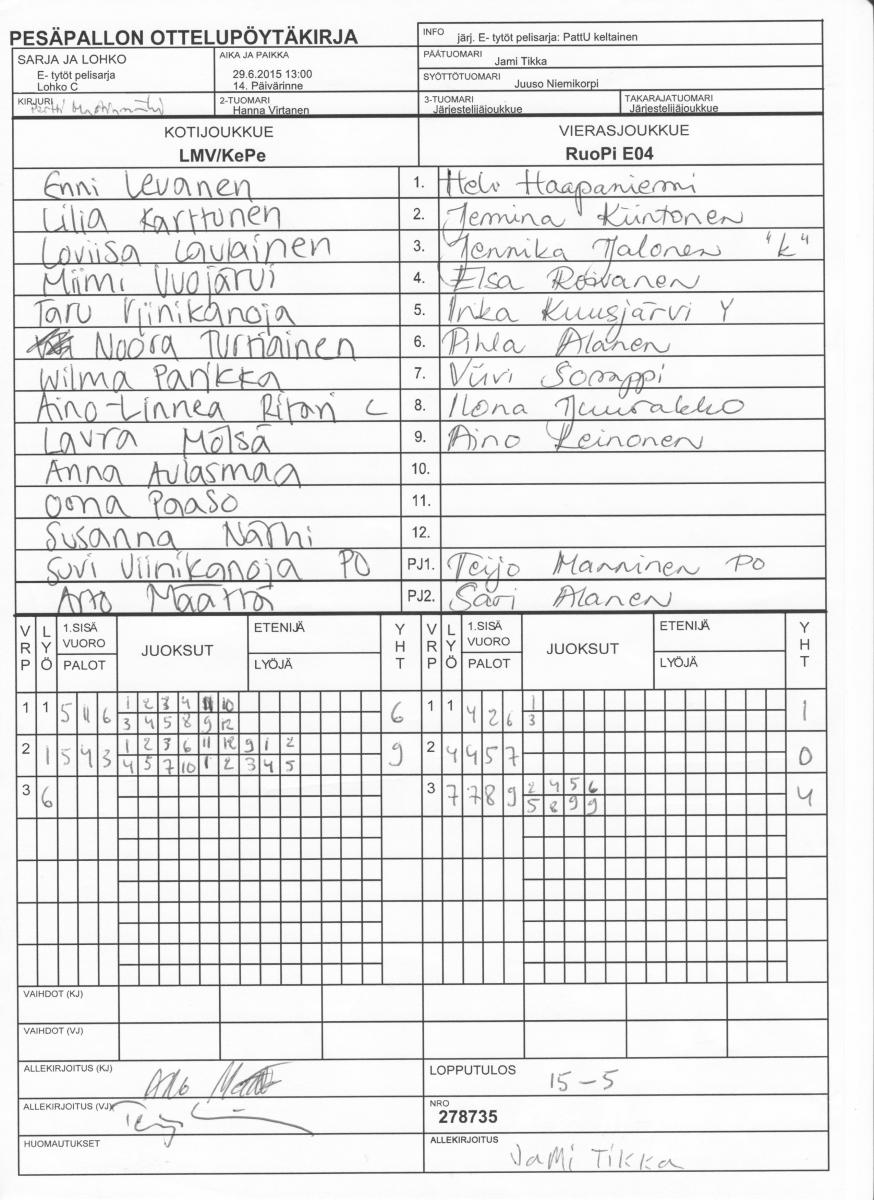 PESÄPALLON OTTELUPÖYTÄKIRJA
INFO järj. E- tytöt pelisarja: PattU keltainen
SARJA JA LOHKO
E- tytöt pelisarja
Lohko C
AIKA JA PAIKKA
29.6.2015 13:00
14. Päivärinne
PÄÄTUOMARI
Jami Tikka
SYÖTTÖTUOMARI
Juuso Niemikorpi
KIRJURI
Pertti
2-TUOMARI
Hanna Virtanen
3-TUOMARI
Järjestelijäjoukkue
TAKARAJATUOMARI
Järjestelijäjoukkue
KOTIJOUKKUE
LMV/KePe
VIERASJOUKKUE
RuoPi E04
Enni Levanen 1. Helv Haapaniemi
Lilia Karttunen 2. Jemina Kiintonen
Loviisa Laulainen 3. Jennika Jalonen "k"
Miimi Vuojärvi 4. Elsa Roivanen
Taru Viinikanoja 5. Inka Kuusjärvi Y
Noora Turtiainen 6. Pihla Alanen
Wilma Parikka 7. Viivi Somppi
Aino-Linnea Ritari C 8. Ilona Juurakko
Laura Mölsä 9. Aino Leinonen
Anna Aulasmaa 10.
Oona Paaso 11.
Susanna Närhi 12.
Suvi Viinikanoja PO PJ1. Teijo Manninen PO
Arto Määttä PJ2. Sari Alanen
VRP LYÖ 1.SISÄ VUORO PALOT JUOKSUT ETENIJÄ LYÖJÄ YHT VRP LYÖ 1.SISÄ VUORO PALOT JUOKSUT ETENIJÄ LYÖJÄ YHT
1 1 5 11 6 1 2 3 4 11 10 6 1 1 4 2 6 1 1
3 4 5 8 9 12 3
2 1 5 4 3 1 2 3 6 11 12 9 1 2 9 2 4 4 5 7 0
4 5 7 10 1 2 3 4 5
3 6 3 7 7 8 9 2 4 5 6 4
5 8 9 9
VAIHDOT (KJ)
VAIHDOT (VJ)
ALLEKIRJOITUS (KJ)
LOPPUTULOS 15-5
ALLEKIRJOITUS (VJ)
NRO
278735
HUOMAUTUKSET
ALLEKIRJOITUS
Jami Tikka